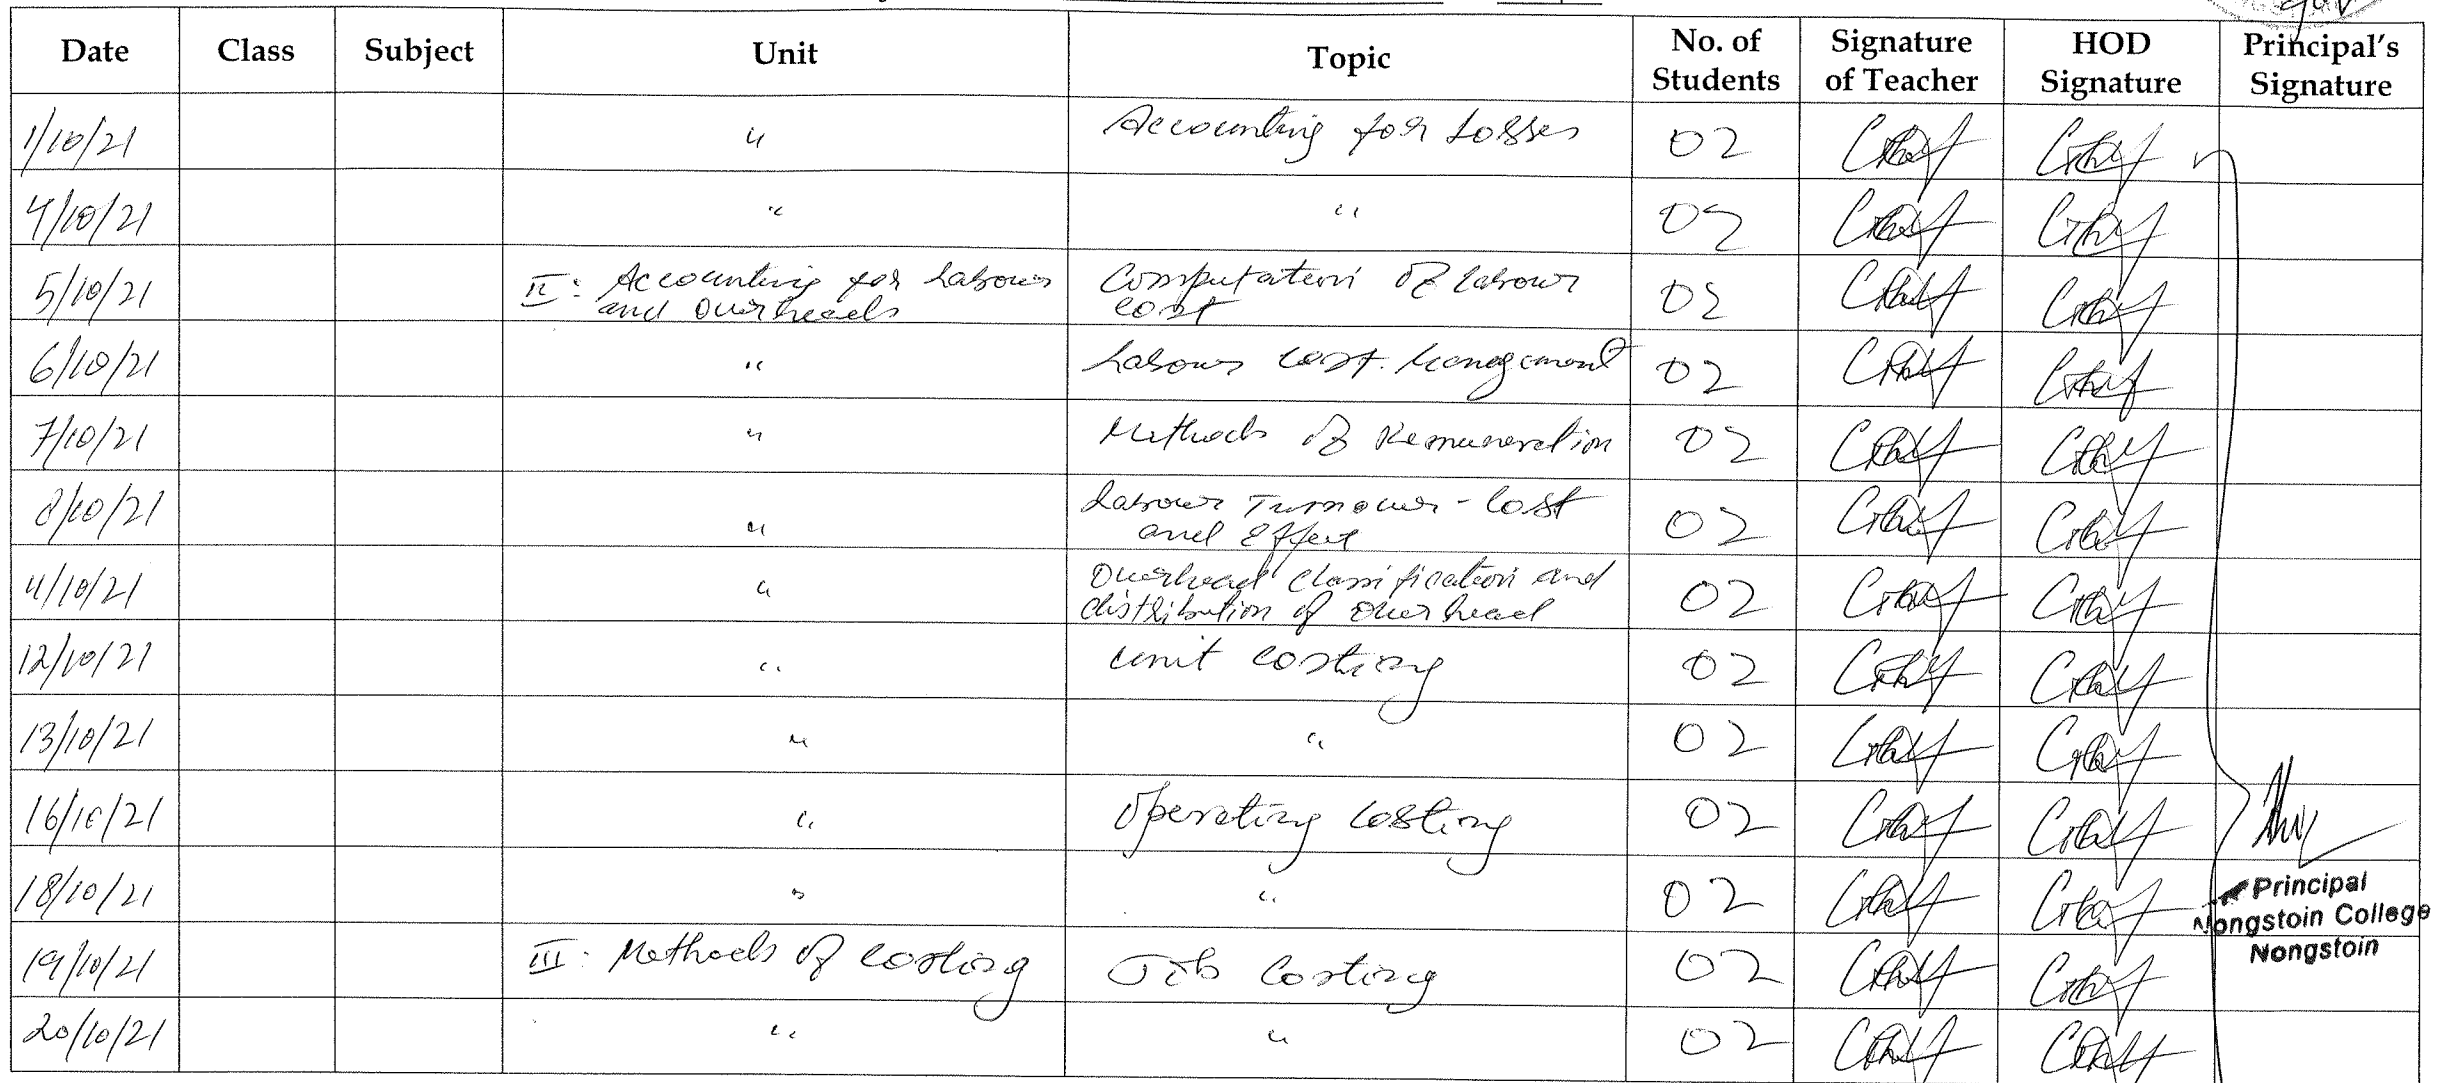 Date Class Subject Unit Topic No. of Students Signature of Teacher HOD Signature Principal's Signature
1/10/21 " Accounting for Losses 02
4/10/21 " " 02
5/10/21 II: Accounting for Labour and Overheads Computation of Labour cost 02
6/10/21 " Labour cost. Management 02
7/10/21 " Methods of Remuneration 02
8/10/21 " Labour Turnover - Cost and Effect 02
11/10/21 " Overhead classification and distribution of overhead 02
12/10/21 " Unit costing 02
13/10/21 " " 02
16/10/21 " Operating Costing 02
18/10/21 " " 02
Principal
Nongstoin College
Nongstoin
19/10/21 III: Methods of Costing Job Costing 02
20/10/21 " " 02